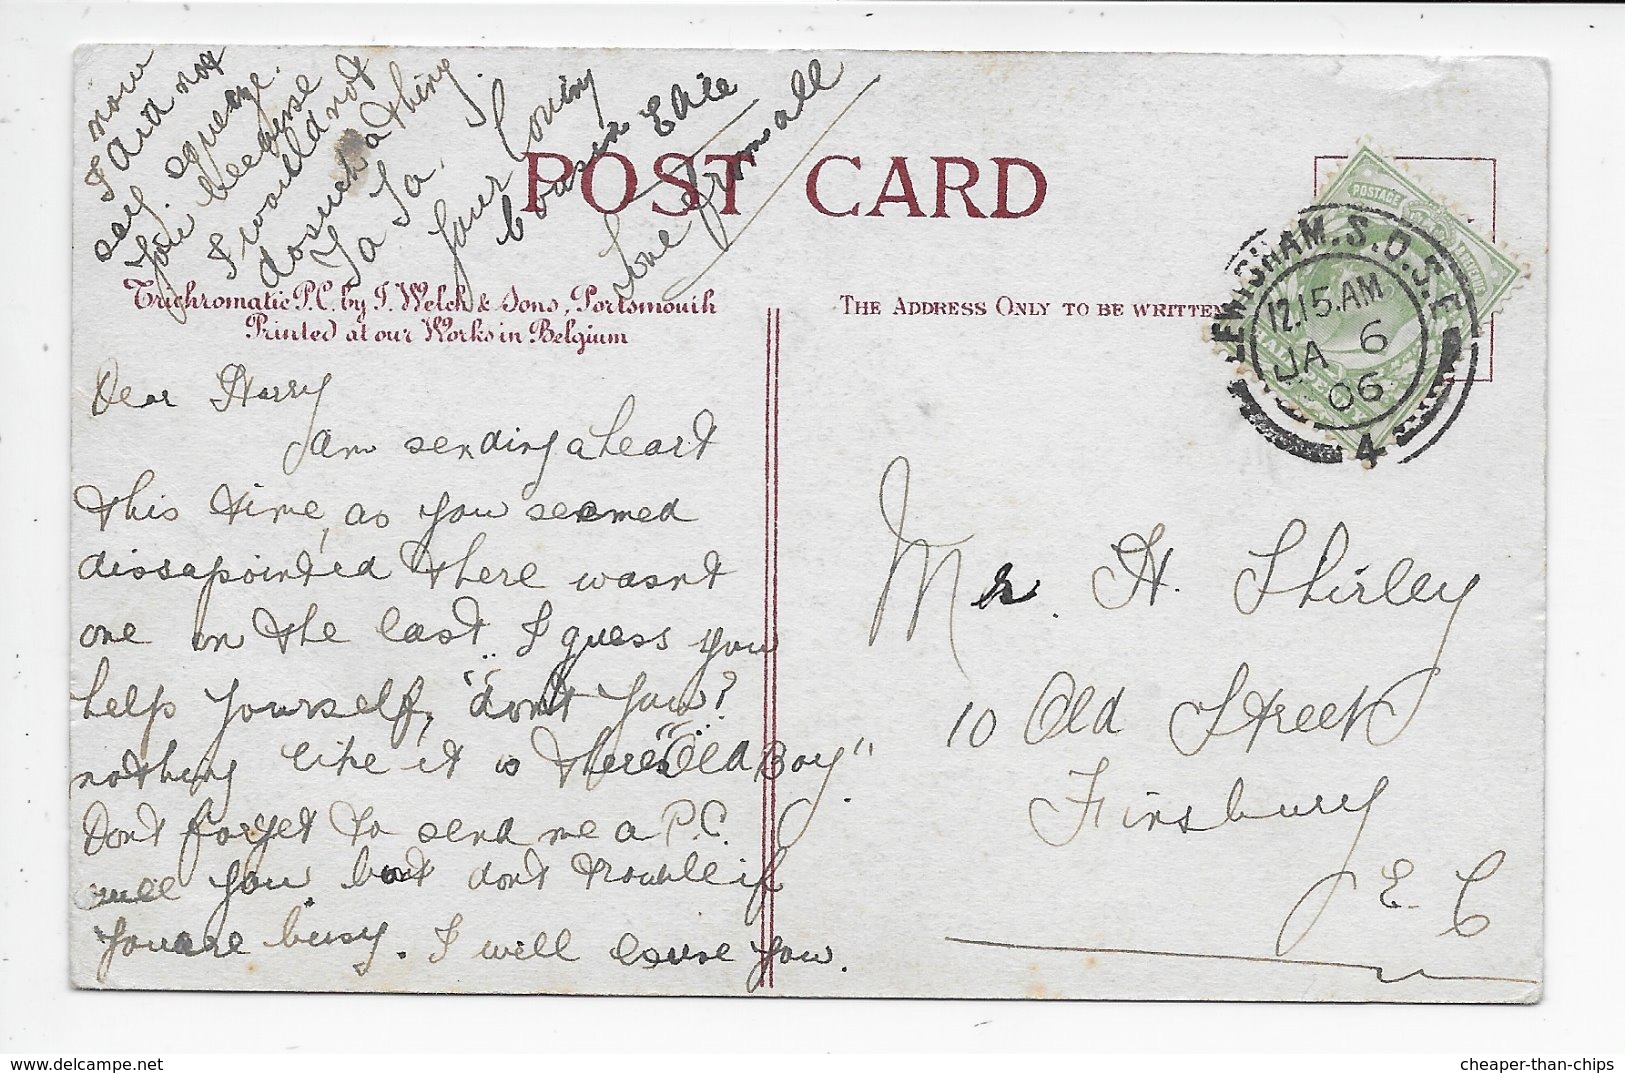 POST CARD
Trichromatic P.C. by J. Welch & Sons, Portsmouth
Printed at our Works in Belgium
THE ADDRESS ONLY TO BE WRITTEN
POSTAGE
LEWISHAM.S.O.S.E
12.15.AM
JA 6
06
4
Dear Harry
am sending a heart
this time, as you seemed
dissapointed there wasnt
one on the last. I guess you
help yourself, "dont you?"
nothing like it is there "Old Boy".
Dont forget to send me a P.C.
will you, but dont trouble if
you are busy. I will excuse you.
now
I did not
say. squeeze.
you because
I would not
do such a thing.
Ta Ta.
Your loving
cousin Edie
Love from all
Mr. H. Shirley
10 Old Street
Finsbury
E. C
cheaper-than-chips